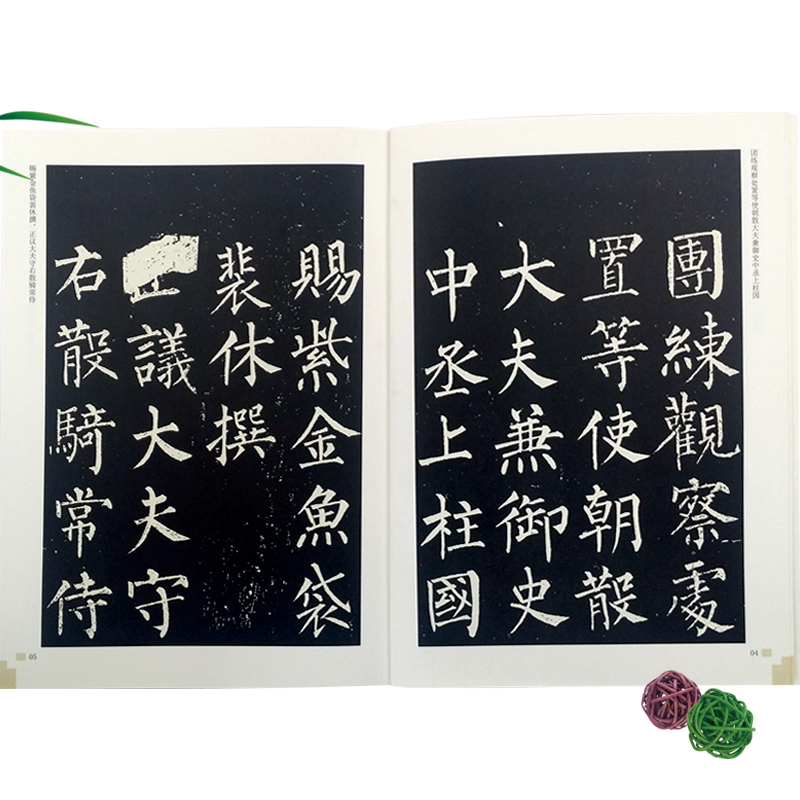 团练观察处置等使朝散大夫兼御史中丞上柱国
團練觀察處
置等使朝散
大夫兼御史
中丞上柱國
04
赐紫金鱼袋裴休撰。正议大夫守右散骑常侍
賜紫金魚袋
裴休撰
議大夫守
右散騎常侍
05